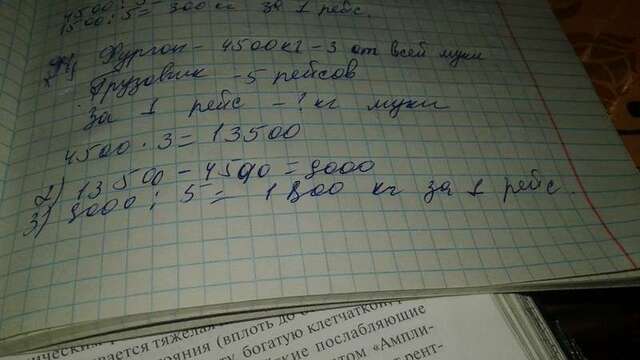 4500 : 5 =
1500 : 5 = 300 кг за 1 рейс.
Фургон - 4500 кг - 3 от всей муки
Грузовик - 5 рейсов
За 1 рейс - ? кг муки
4500 · 3 = 13500
2) 13500 - 4500 = 9000
3) 9000 : 5 = 1800 кг за 1 рейс.
вается тяжела
ояния (вплоть до
ту, богатую клетчаткой,
кие послабляющие
том «Ампли-
рент-